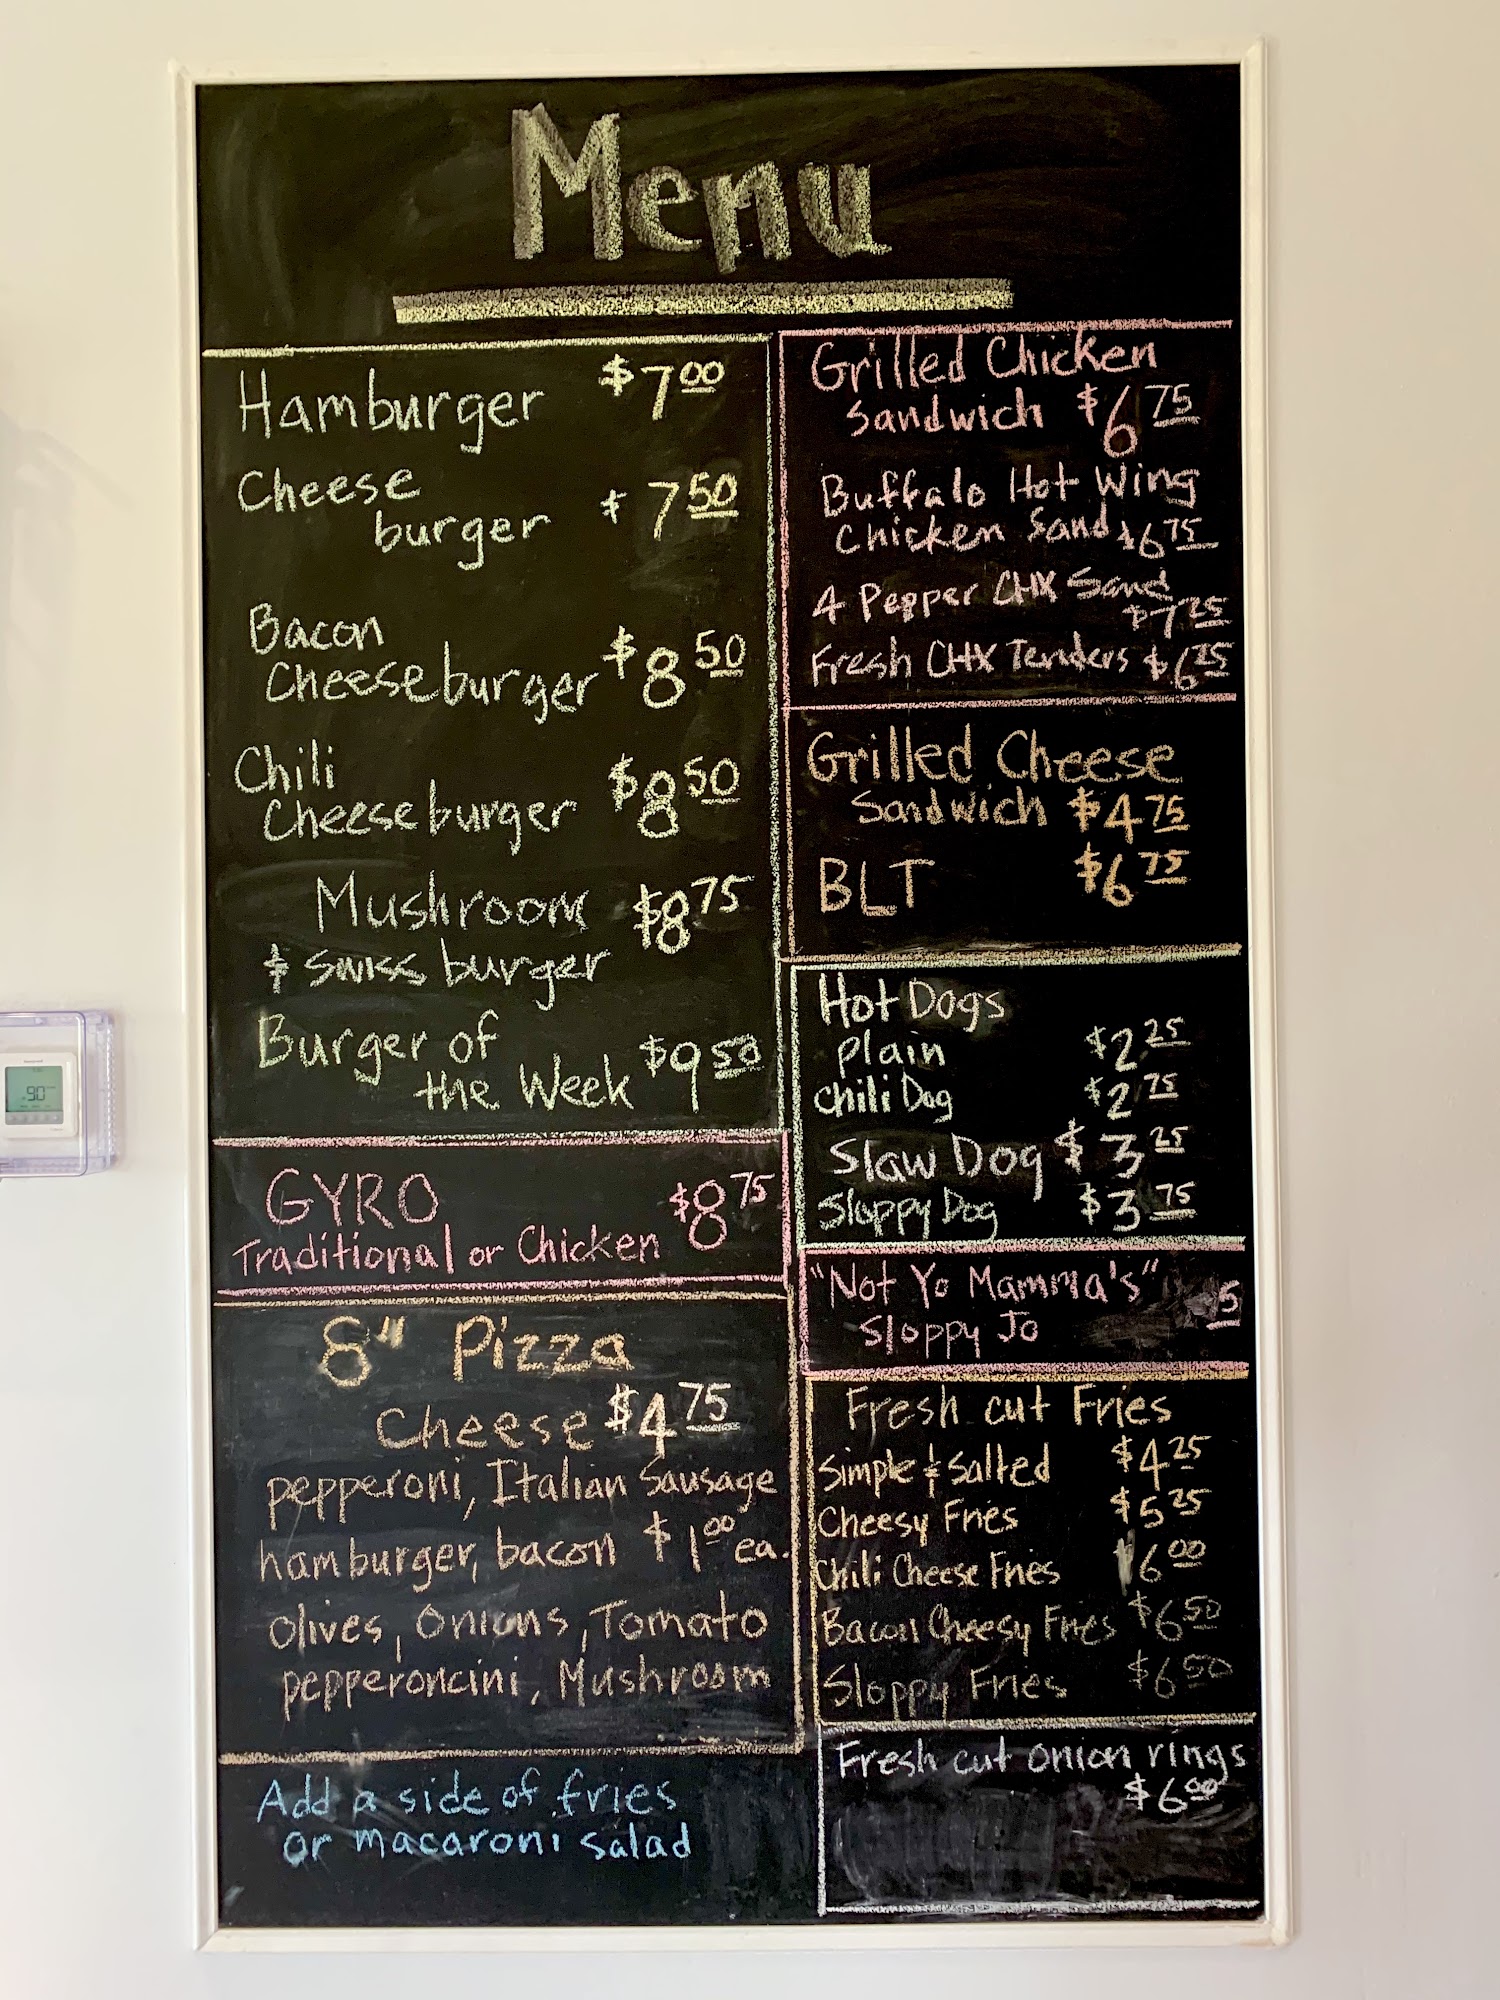 Menu
Hamburger $7.00
Cheese
burger $7.50
Bacon
Cheeseburger $8.50
Chili
Cheeseburger $8.50
Mushroom $8.75
& Swiss burger
Burger of
the Week $9.50
GYRO $8.75
Traditional or Chicken
8" Pizza
Cheese $4.75
pepperoni, Italian Sausage
hamburger, bacon $1.00 ea.
olives, onions, Tomato
pepperoncini, Mushroom
Add a side of fries
or macaroni salad
Grilled Chicken
Sandwich $6.75
Buffalo Hot Wing
Chicken Sand $6.75
4 Pepper CHX Sand
$7.25
Fresh CHX Tenders $6.25
Grilled Cheese
Sandwich $4.75
BLT $6.75
Hot Dogs
plain $2.25
Chili Dog $2.75
Slaw Dog $3.25
Sloppy Dog $3.75
"Not Yo Mamma's"
Sloppy Jo
Fresh cut Fries
Simple & Salted $4.25
Cheesy Fries $5.25
Chili Cheese Fries 6.00
Bacon Cheesy Fries $6.50
Sloppy Fries $6.50
Fresh cut onion rings
$6.00
90